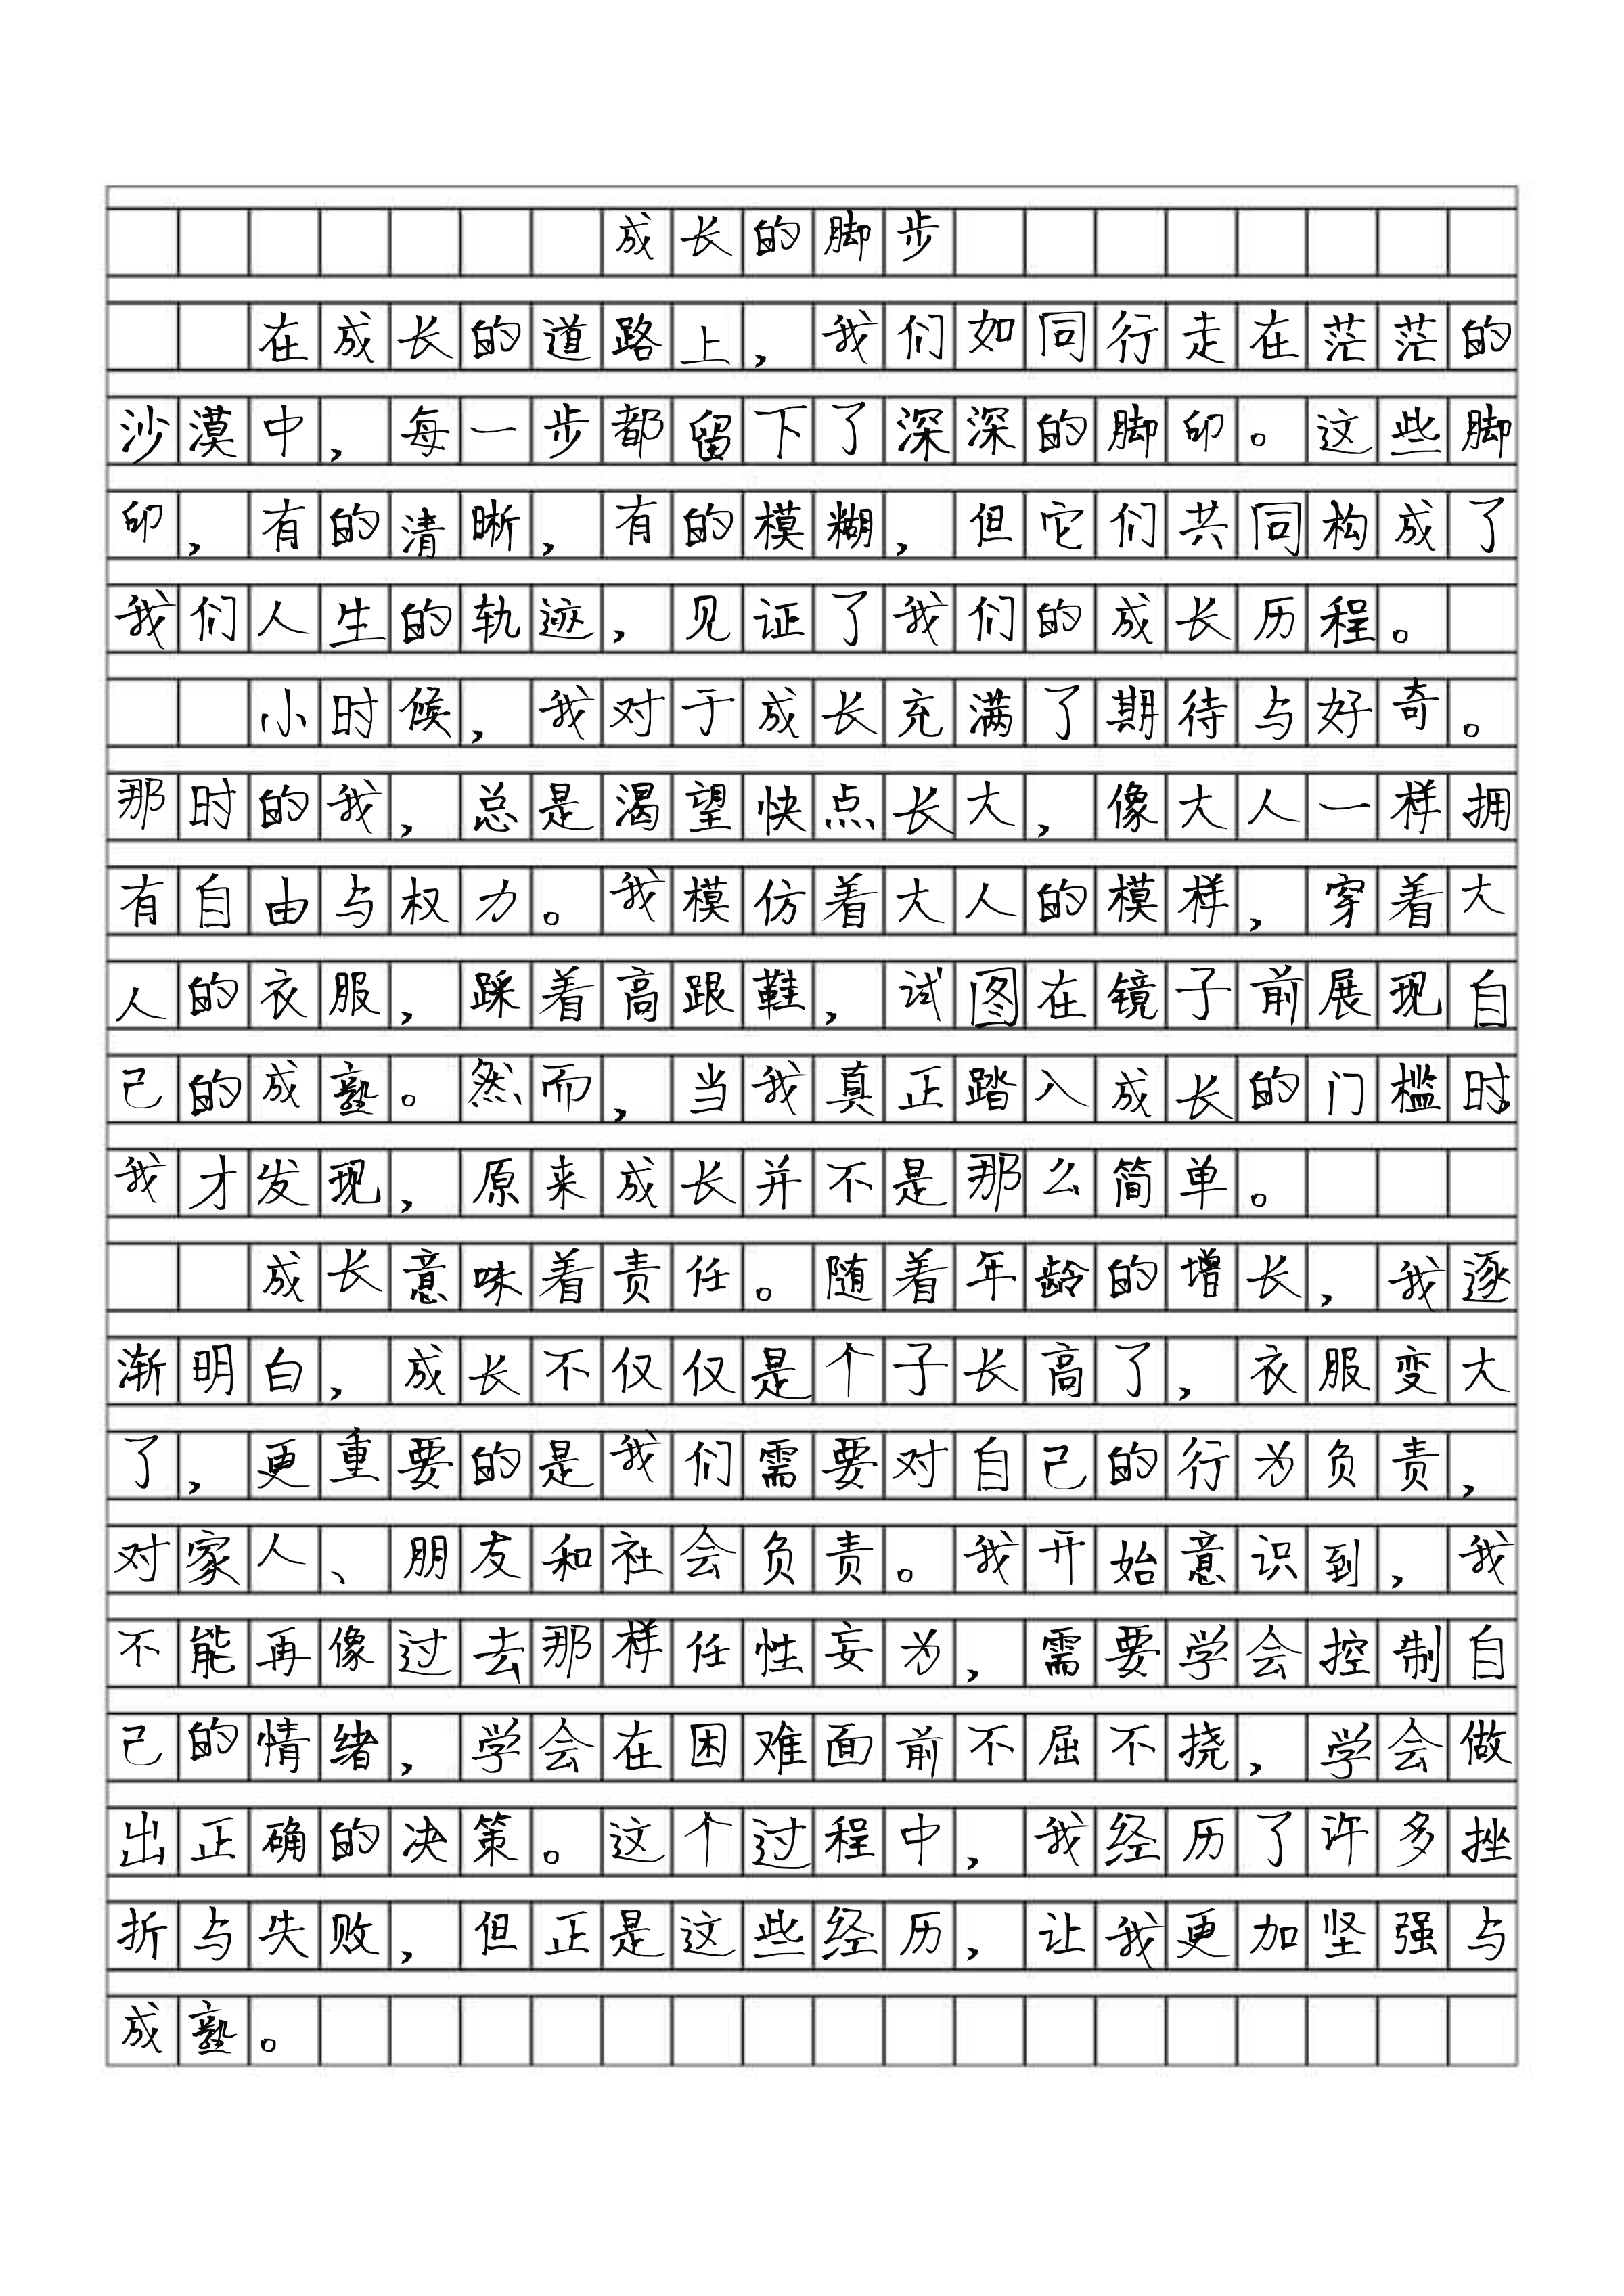 成长的脚步
在成长的道路上，我们如同行走在茫茫的
沙漠中，每一步都留下了深深的脚印。这些脚
印，有的清晰，有的模糊，但它们共同构成了
我们人生的轨迹，见证了我们的成长历程。
小时候，我对于成长充满了期待与好奇。
那时的我，总是渴望快点长大，像大人一样拥
有自由与权力。我模仿着大人的模样，穿着大
人的衣服，踩着高跟鞋，试图在镜子前展现自
己的成熟。然而，当我真正踏入成长的门槛时，
我才发现，原来成长并不是那么简单。
成长意味着责任。随着年龄的增长，我逐
渐明白，成长不仅仅是个子长高了，衣服变大
了，更重要的是我们需要对自己的行为负责，
对家人、朋友和社会负责。我开始意识到，我
不能再像过去那样任性妄为，需要学会控制自
己的情绪，学会在困难面前不屈不挠，学会做
出正确的决策。这个过程中，我经历了许多挫
折与失败，但正是这些经历，让我更加坚强与
成熟。